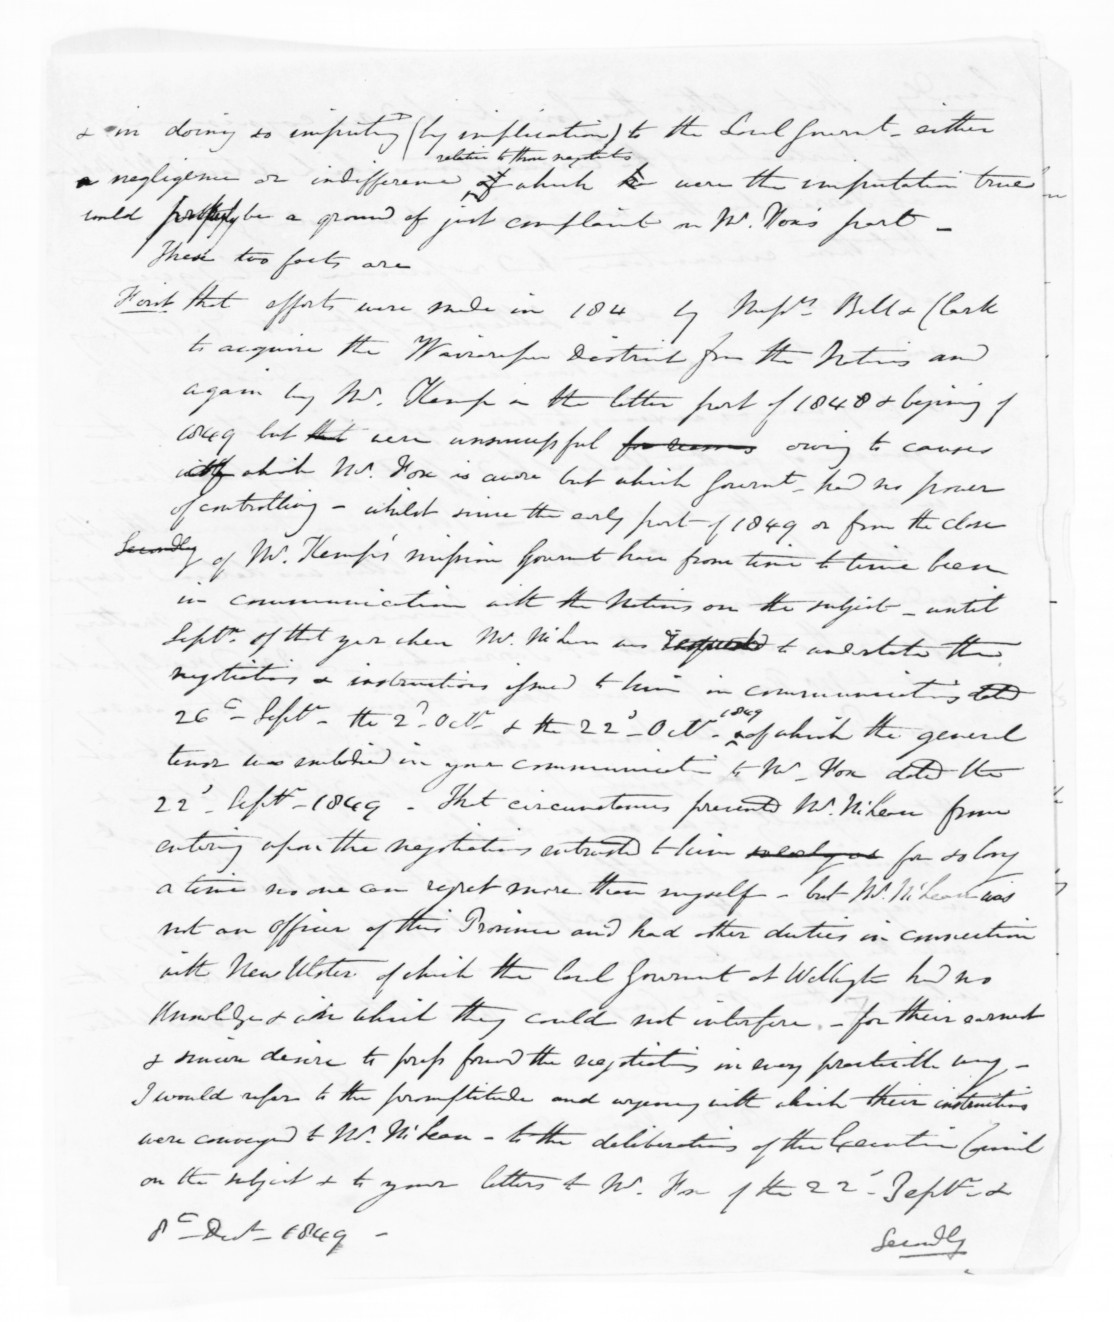 & in doing so imputing (by implication) to the Local Governmt. either
relative to those negotiatns
negligence or indifference of which were the imputation true
could properly be a ground of just complaint on Mr. Fox's part –
These two facts are
First that efforts were made in 184 by Messrs Bell & Clark
to acquire the Wairarapa District from the Natives and
again by Mr. Kemp in the latter part of 1848 & begining of
1849 but that were unsuccessful for reasons owing to causes
with which Mr. Fox is aware but which Governmt. had no power
of controlling – whilst since the early part of 1849 or from the close
Secondly of Mr. Kemp's mission Governmt have from time to time been
in communication with the Natives on the subject – until
Septr. of that year when Mr. McLean was requested to undertake these
negotiations & instructions issued to him in communications dated
1849
26th Septr. the 2d Octr. & the 22d Octr. of which the general
tenor was embodied in your communication to Mr. Fox dated the
22d Septr. 1849 – That circumstances prevented Mr. McLean from
entering upon the negotiations entrusted to him for so long
a time no one can regret more than myself – but Mr. McLean was
not an Officer of this Province and had other duties in connection
with New Ulster of which the local Governmt at Wellington had no
knowledge & with which they could not interfere – for their earnest
& sincere desire to press forward the negotiations in every practicable way –
I would refer to the promptitude and urgency with which their instructions
were conveyed to Mr. McLean – to the deliberations of the Executive Council
on the subject & to your letters to Mr. Fox of the 22d Septr. &
8th Decr. 1849 –
Secondly